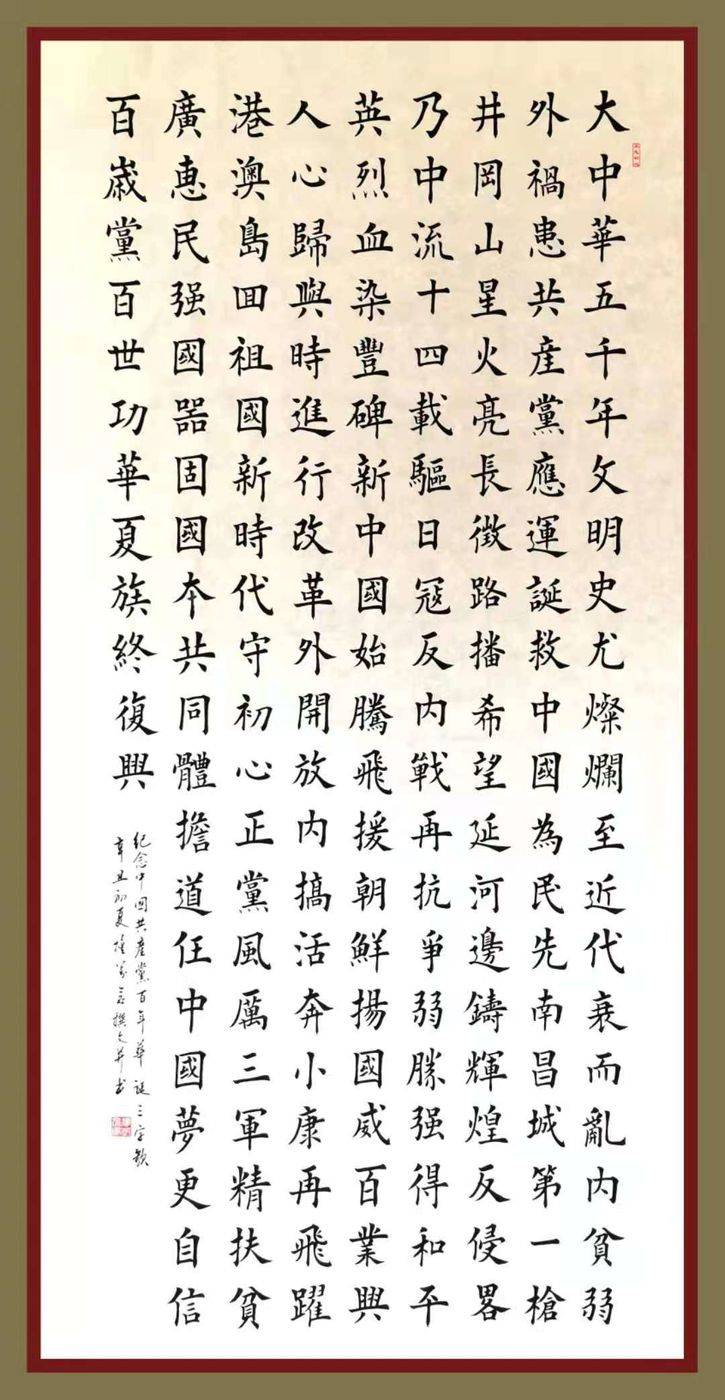 大中華五千年文明史尤燦爛至近代衰而亂内貧弱
外禍患共産黨應運誕救中國為民先南昌城第一槍
井岡山星火亮長徵路播希望延河邊鑄輝煌反侵畧
乃中流十四載驅日寇反内戰再抗爭弱勝强得和平
英烈血染豐碑新中國始騰飛援朝鮮揚國威百業興
人心歸與時進行改革外開放内搞活奔小康再飛躍
港澳島回祖國新時代守初心正黨風厲三軍精扶貧
廣惠民强國器固國本共同體擔道任中國夢更自信
百歲黨百世功華夏族終復興
紀念中國共産黨百年華誕三字歌
辛丑初夏陸言撰文并书